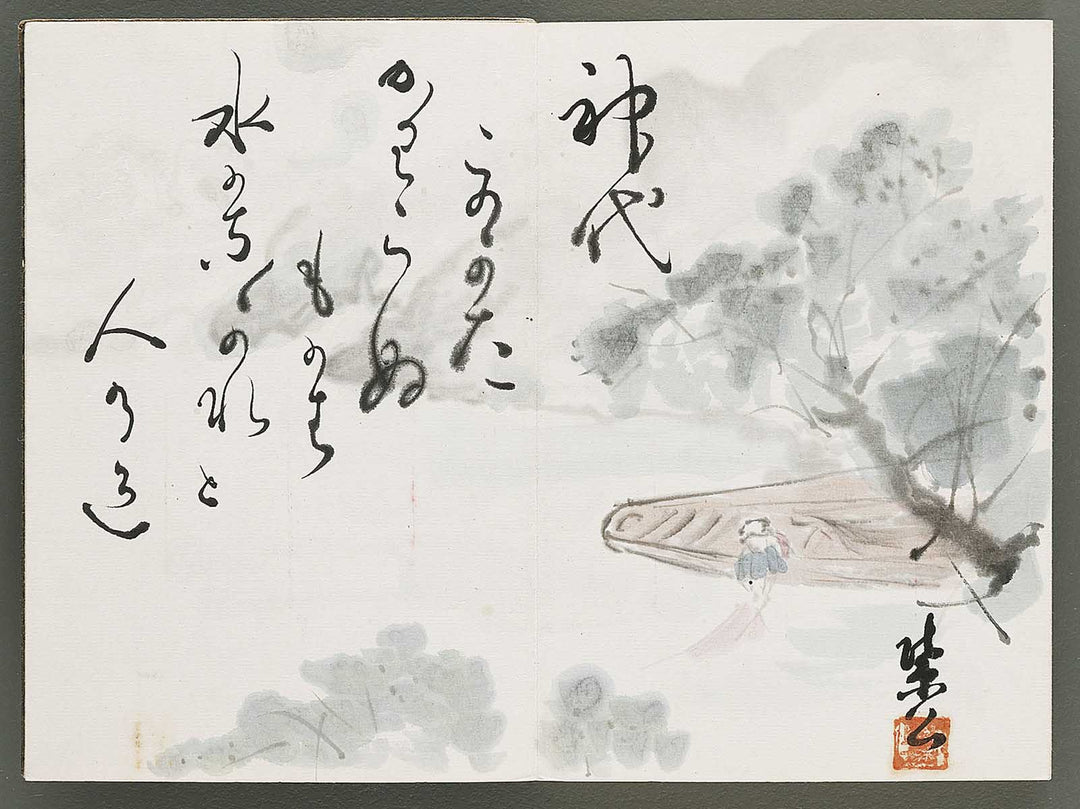 神代
このかた
かわらぬ
ものは
水のながれと
人の道